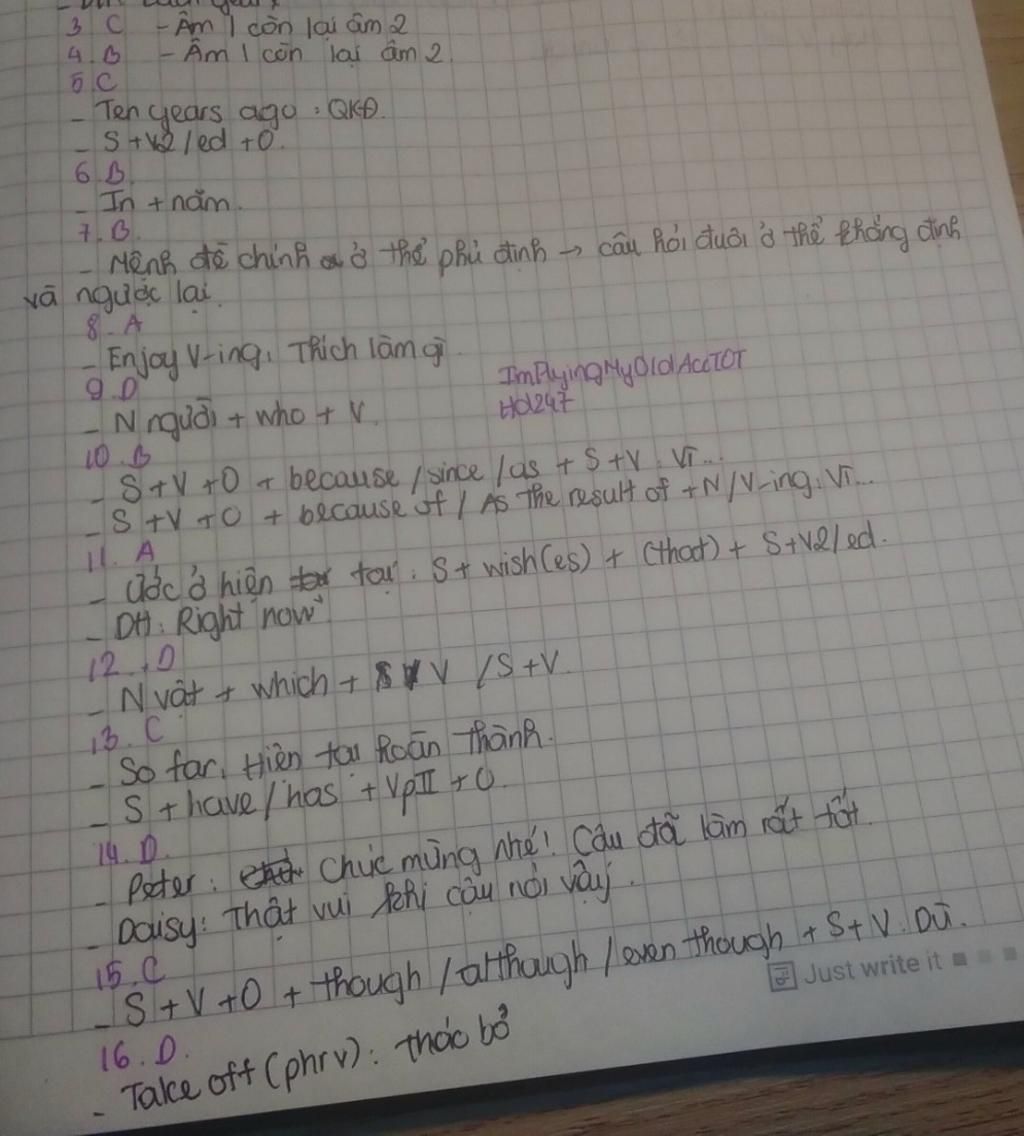 3 C - Âm 1 còn lại âm 2
4. B - Âm 1 còn lại âm 2
5 C
- Ten years ago : QKĐ.
- S + V2/ed + O.
6 B
- In + năm.
7. B
- Mệnh đề chính ở thể phủ định → câu hỏi đuôi ở thể khẳng định
và ngược lại.
8. A
- Enjoy V-ing: Thích làm gì
ImPlyingMyOldAccTOT
Hd247
9. D
- N người + who + V.
10. B
- S + V + O + because / since / as + S + V : Vì...
- S + V + O + because of / As the result of + N / V-ing: Vì...
11. A
- Ước ở hiện tại: S + wish(es) + (that) + S + V2/ed.
- DH: Right now
12. D
- N vật + which + V / S + V.
13. C
- So far: Hiện tại hoàn thành.
- S + have / has + VpII + O.
14. D.
- Peter: Chúc mừng nhé! Cậu đã làm rất tốt.
- Daisy: Thật vui khi cậu nói vậy.
15. C
- S + V + O + though / although / even though + S + V : Dù.
Just write it
16. D.
- Take off (phr v): tháo bỏ